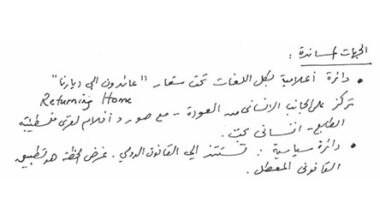 الجهات المساندة :
• دائرة أعلامية بكل اللغات تحت شعار "عائدون الى ديارنا"
Returning Home
تركز على الجانب الانساني من العودة - مع صور وافلام لقرى فلسطينية
الطابع - انساني بحت.
• دائرة سياسية : تستند إلى القانون الدولي. غرض الخطة هو تطبيق
القانون المعطل.